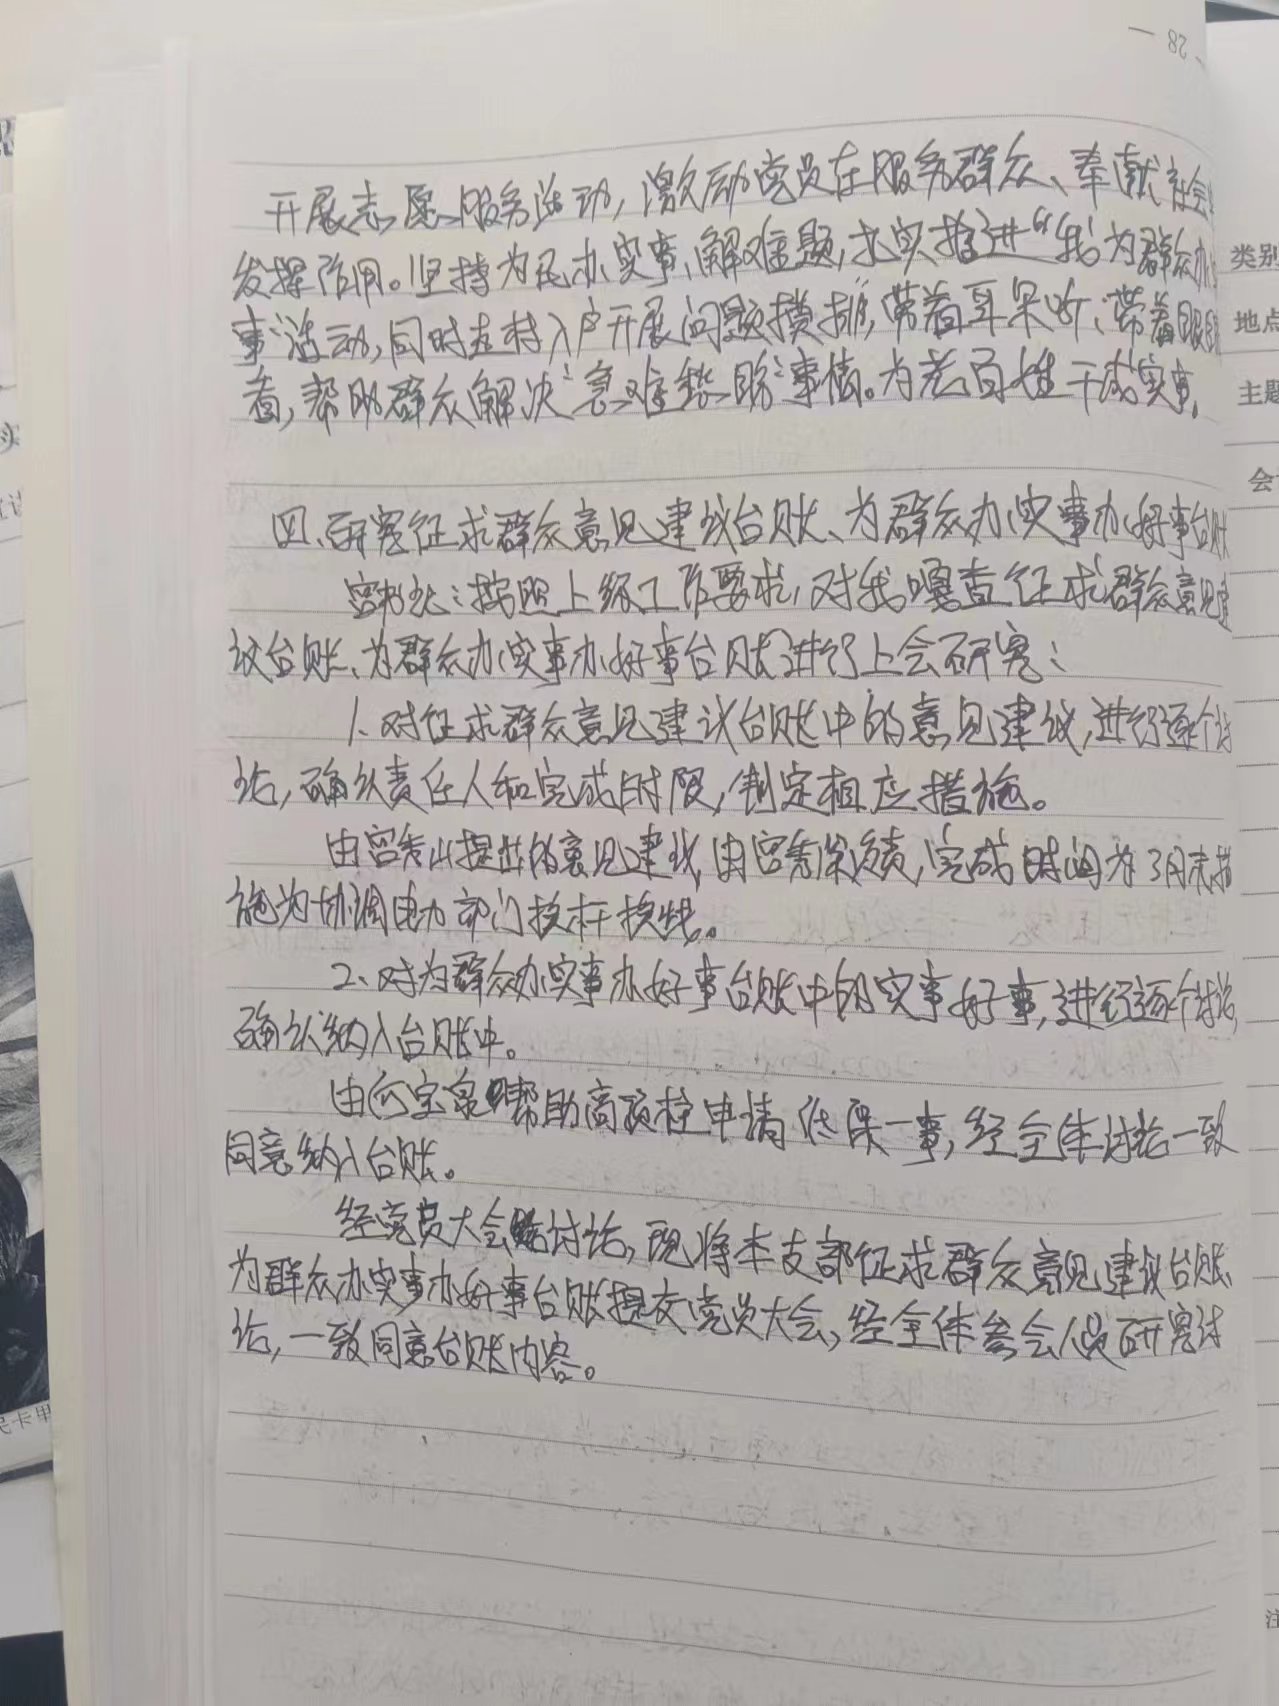 — 28 —
开展志愿服务活动，激励党员在服务群众、奉献社会
发挥作用。坚持为民办实事、解难题，扎实推进“我为群众办
事”活动，同时在村入户开展问题摸排，带着耳朵听，带着眼睛
看，帮助群众解决“急难愁盼”事情。为老百姓干成实事。
四、研究征求群众意见建议台账、为群众办实事办好事台账
宫书记：按照上级工作要求，对我嘎查征求群众意见建
议台账、为群众办实事办好事台账进行上会研究：
1、对征求群众意见建议台账中的意见建议，进行逐个讨
论，确认责任人和完成时限，制定相应措施。
由宫秀山提出的意见建议，由宫负责，完成时间为3月末措
施为协调电力部门换杆换线。
2、对为群众办实事办好事台账中的实事好事，进行逐个讨论，
确认纳入台账中。
由宝泉帮助高申请低保一事，经全体讨论一致
同意纳入台账。
经党员大会讨论，现将本支部征求群众意见建议台账、
为群众办实事办好事台账提交党员大会，经全体参会人员研究讨
论，一致同意台账内容。
类别
地点
主题
会
注
民卡甲